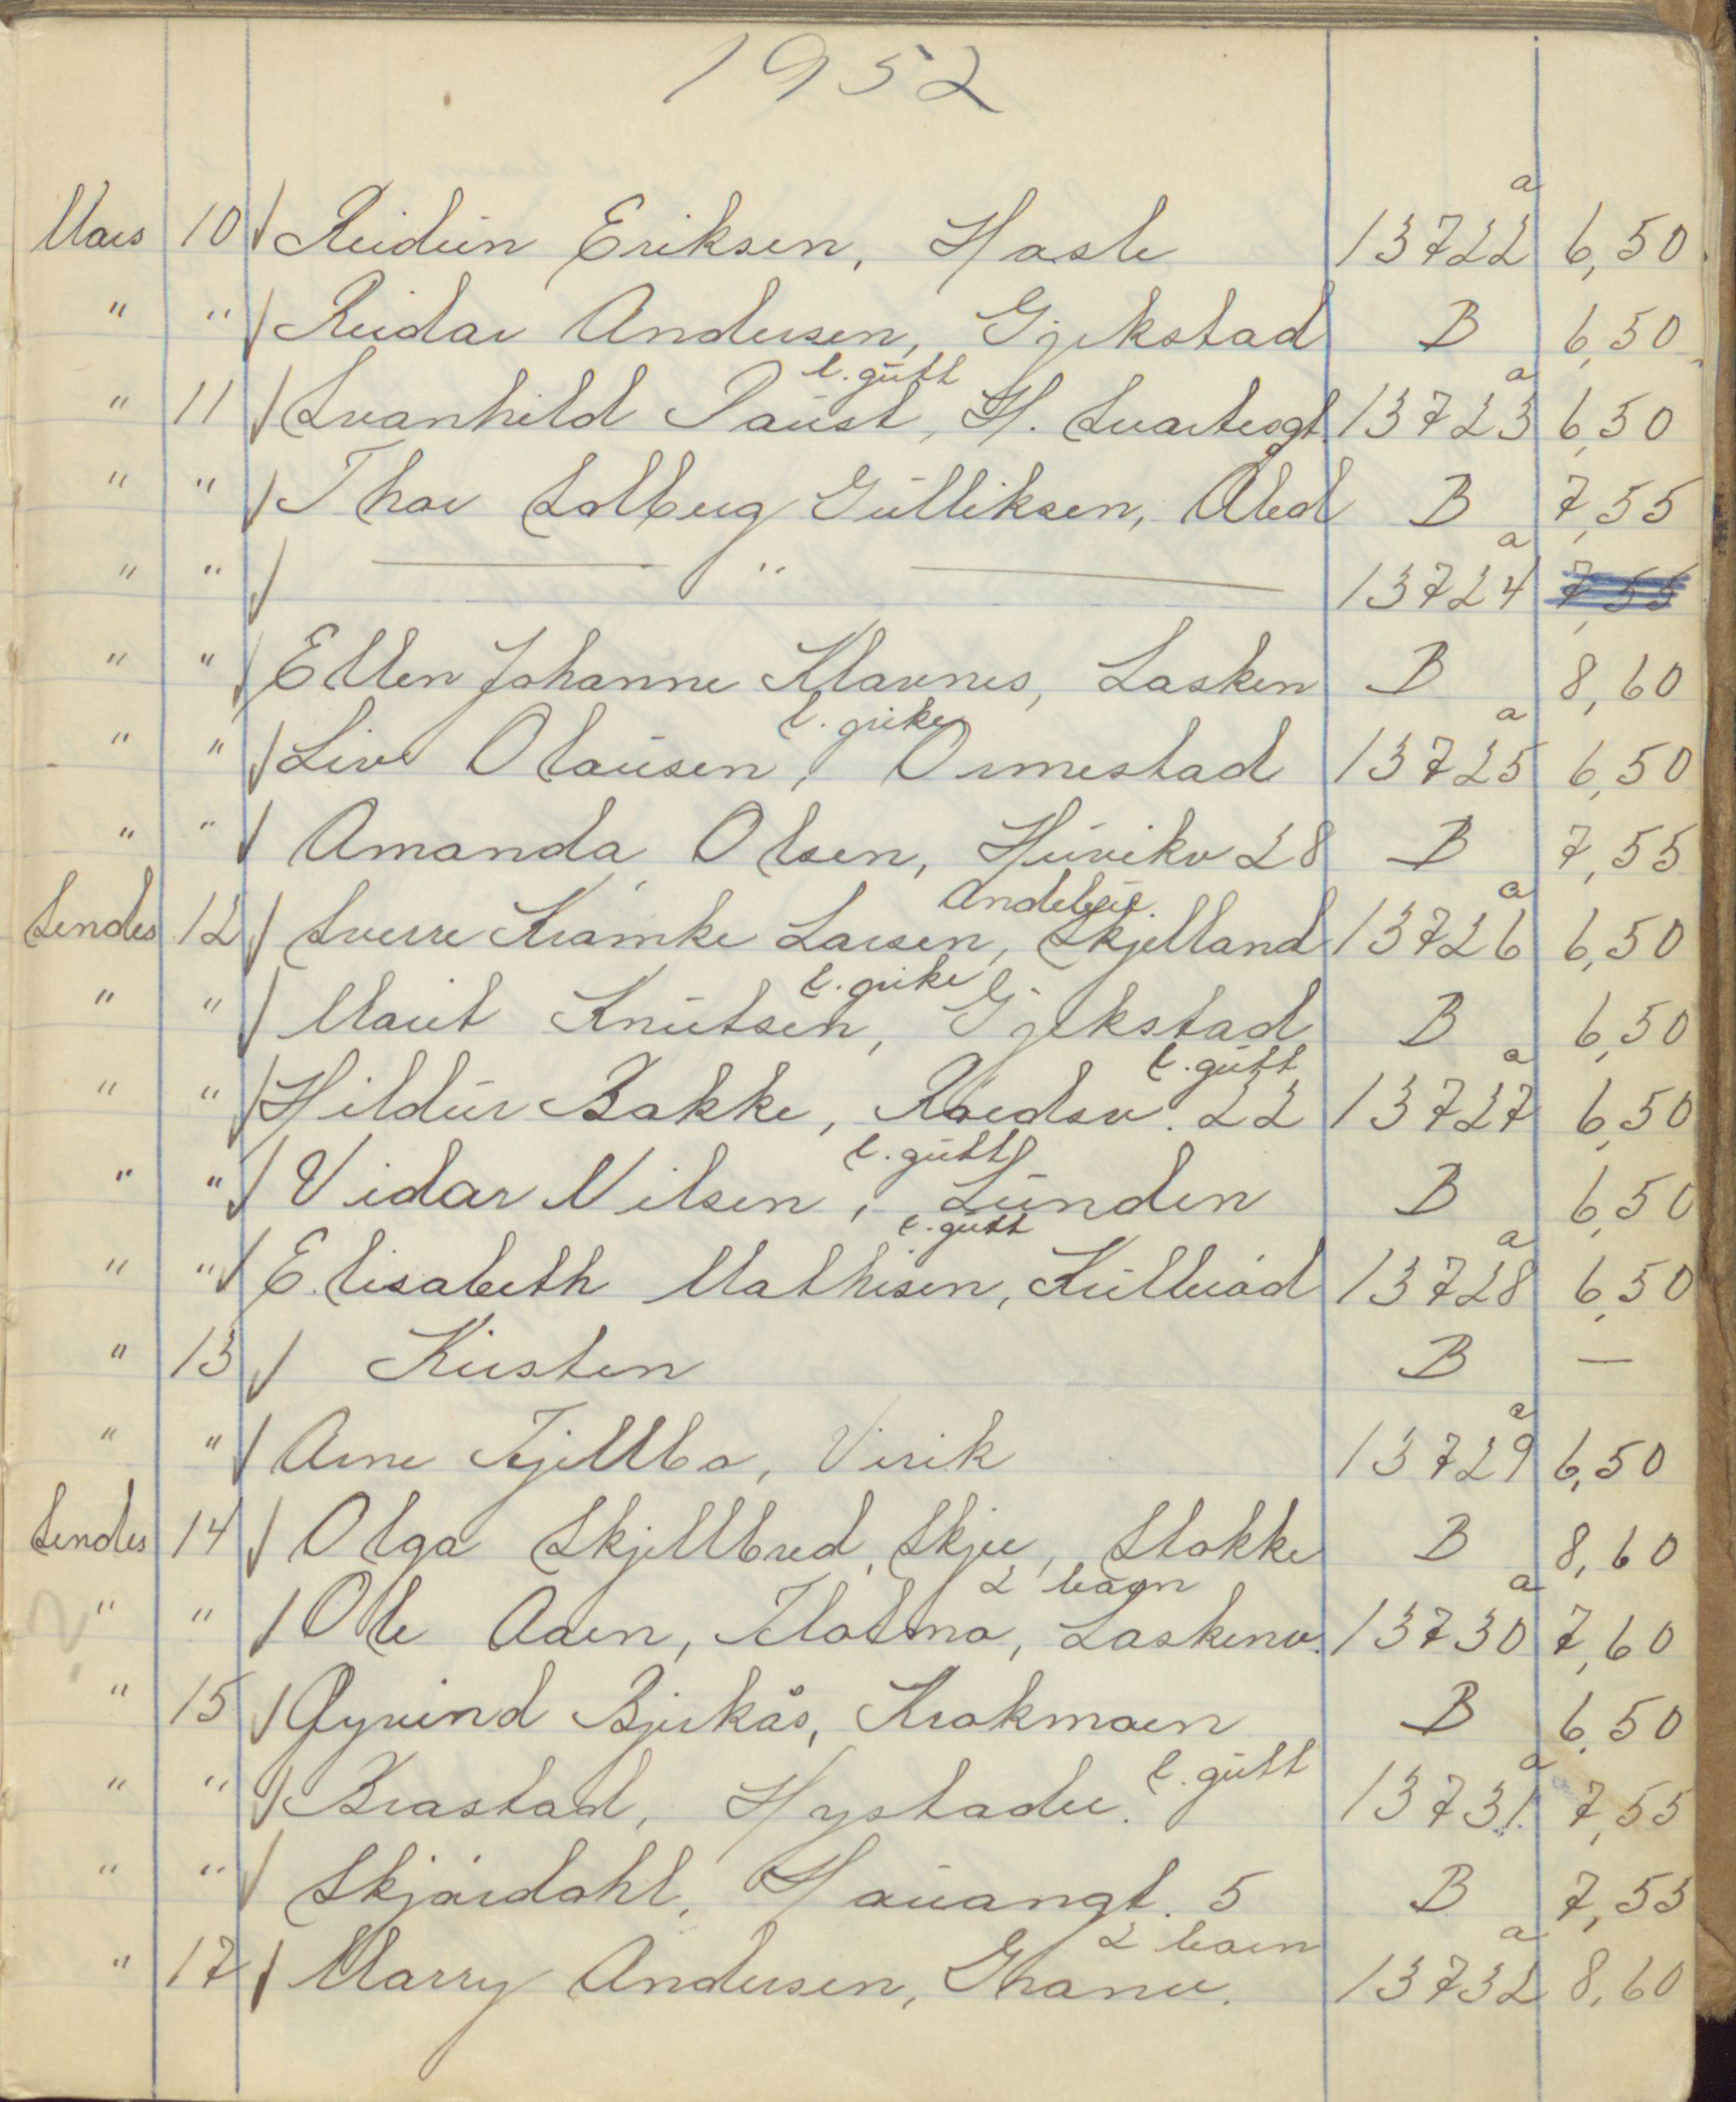 1952
Mars 10 √ Reidun Eriksen, Hasle 13722 a 6,50
" " √ Reidar Andersen, Gjekstad B 6,50
l. gutt
" 11 √ Svanhild Paust, H. Svartsgt. 13723 a 6,50
" " √ Thor Solberg Gulliksen, Åbol B 7,55
" " √ — " — 13724 a 7,55
" " √ Ellen Johanne Klavnes, Lasken B 8,60
l. pike
" " √ Liv Olausen, Ormestad 13725 a 6,50
" " √ Amanda Olsen, Huvikv 28 B 7,55
Andebu.
Sendes 12 √ Sverre Kramke Larsen, Skjelland 13726 a 6,50
l. pike
" " √ Marit Knutsen, Gjekstad B 6,50
l. gutt
" " √ Hildur Bakke, Raedsv. 22 13727 a 6,50
l. gutt
" " √ Vidar Nilsen, Lunden B 6,50
l. gutt
" " √ Elisabeth Mathisen, Kullerød 13728 a 6,50
" 13 √ Kirsten B —
" " √ Arne Fjellbo, Virik 13729 a 6,50
Sendes 14 √ Olga Skjellbred, Skjee, Stokke B 8,60
2 barn
" " √ Ole Aaen, Flatmo, Laskenv. 13730 a 7,60
" 15 √ Øyvind Bjerkås, Krokmoen B 6,50
l. gutt
" " √ Brastad, Hystadv. 13731 a 7,55
" " √ Skjärdahl, Hauangt. 5 B 7,55
2 barn
" 17 √ Marry Andersen, Granv. 13732 a 8,60